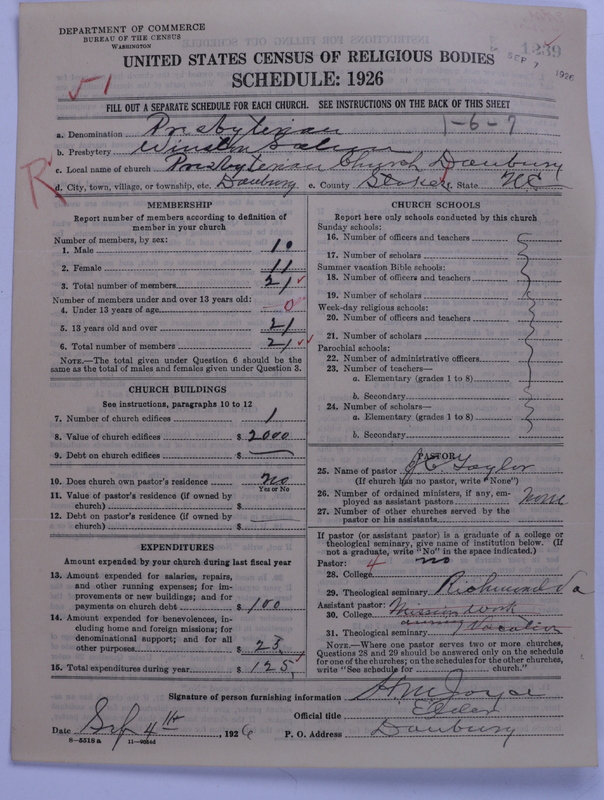 DEPARTMENT OF COMMERCE
BUREAU OF THE CENSUS
WASHINGTON
1239
SEP 7 1926
UNITED STATES CENSUS OF RELIGIOUS BODIES
SCHEDULE: 1926
√1
FILL OUT A SEPARATE SCHEDULE FOR EACH CHURCH. SEE INSTRUCTIONS ON THE BACK OF THIS SHEET
a. Denomination Presbyterian 1-6-7
b. Presbytery Winston Salem
c. Local name of church Presbyterian Church Danbury
R
d. City, town, village, or township, etc. Danbury e. County Stokes f. State N C
MEMBERSHIP
Report number of members according to definition of
member in your church
Number of members, by sex:
1. Male 10
2. Female 11
3. Total number of members 21
Number of members under and over 13 years old:
4. Under 13 years of age 0
5. 13 years old and over 21
6. Total number of members 21
NOTE.—The total given under Question 6 should be the
same as the total of males and females given under Question 3.
CHURCH BUILDINGS
See instructions, paragraphs 10 to 12
7. Number of church edifices 1
8. Value of church edifices $ 2000
9. Debt on church edifices $ —
10. Does church own pastor's residence no
Yes or No
11. Value of pastor's residence (if owned by
church) $
12. Debt on pastor's residence (if owned by
church) $ —
EXPENDITURES
Amount expended by your church during last fiscal year
13. Amount expended for salaries, repairs,
and other running expenses; for im-
provements or new buildings; and for
payments on church debt $ 100
14. Amount expended for benevolences, in-
cluding home and foreign missions; for
denominational support; and for all
other purposes $ 25
15. Total expenditures during year $ 125
CHURCH SCHOOLS
Report here only schools conducted by this church
Sunday schools:
16. Number of officers and teachers
17. Number of scholars
Summer vacation Bible schools:
18. Number of officers and teachers
19. Number of scholars
Week-day religious schools:
20. Number of officers and teachers
21. Number of scholars
Parochial schools:
22. Number of administrative officers
23. Number of teachers—
a. Elementary (grades 1 to 8)
b. Secondary
24. Number of scholars—
a. Elementary (grades 1 to 8)
b. Secondary
PASTOR
25. Name of pastor J C Taylor
(If church has no pastor, write "None")
26. Number of ordained ministers, if any, em-
ployed as assistant pastors None
27. Number of other churches served by the
pastor or his assistants
If pastor (or assistant pastor) is a graduate of a college or
theological seminary, give name of institution below. (If
not a graduate, write "No" in the space indicated.)
Pastor: 4 no
28. College
29. Theological seminary Richmond Va
Assistant pastor: Mission work
30. College during
31. Theological seminary Vacation
NOTE.—Where one pastor serves two or more churches,
Questions 28 and 29 should be answered only on the schedule
for one of the churches; on the schedules for the other churches,
write "See schedule for church."
Signature of person furnishing information H M Joyce
Official title Elder
Date Sep 4th, 1926 P. O. Address Danbury
8—5518a 11—9054d